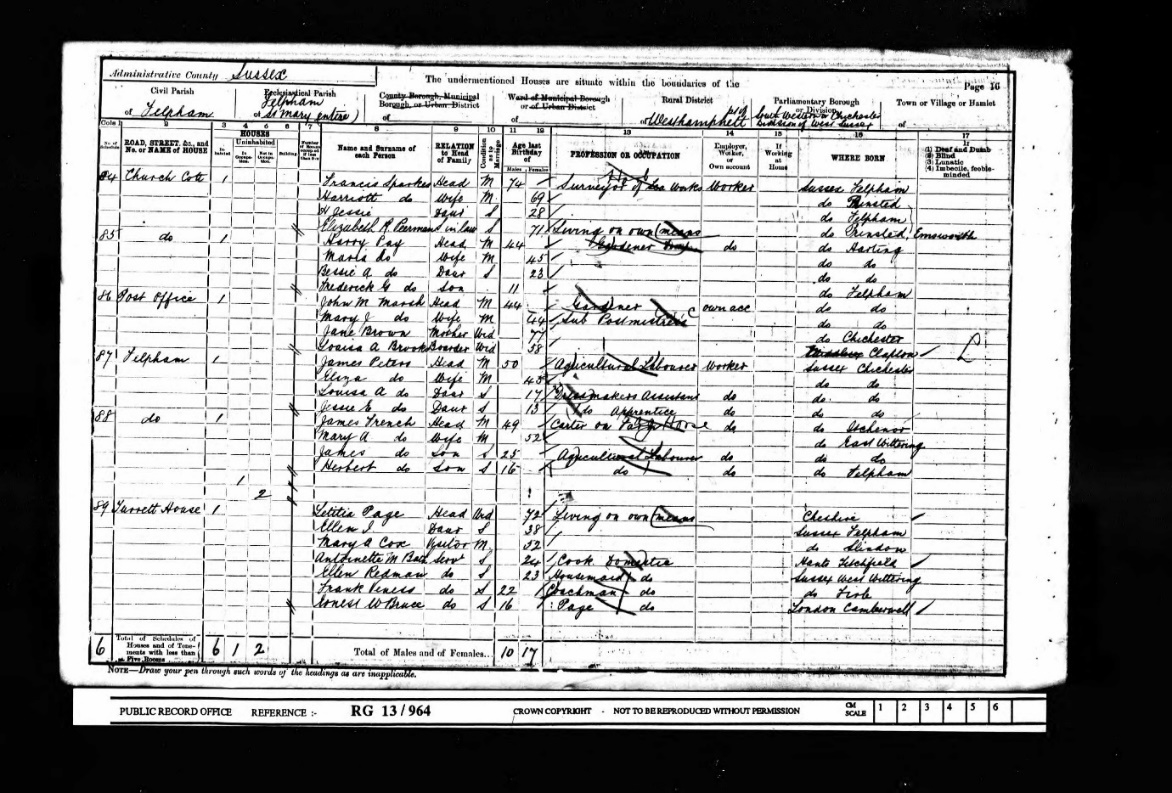 Administrative County Sussex
The undermentioned Houses are situate within the boundaries of the
Page 16
Civil Parish
of Felpham
Ecclesiastical Parish
Felpham
of St Mary (entire)
County Borough, Municipal Borough, or Urban District
of
Ward of Municipal Borough or of Urban District
of
Rural District
of Westhampnett
Parliamentary Borough or Division
South Western or Chichester Division of West Sussex
Town or Village or Hamlet
of
ROAD, STREET, &c., and No. or NAME of HOUSE
HOUSES
Uninhabited
Name and Surname of each Person
RELATION to Head of Family
Condition as to Marriage
Age last Birthday of
Males Females
PROFESSION OR OCCUPATION
Employer, Worker, or Own account
If Working at Home
WHERE BORN
(1) Deaf and Dumb
(2) Blind
(3) Lunatic
(4) Imbecile, feeble-minded
84 Church Cott 1 Francis Sparkes Head M 74 Surveyor of Worker Sussex Felpham
Harriott do Wife M 69 do
H Jessie Daur S 28 do Felpham
Elizabeth R in law S 71 Living on own means do Emsworth
85 do 1 Harry Pay Head M 44 Gardener do do Harting
Maria do Wife M 45 do do
Bessie A do Daur S 23 do do
Frederick G do Son 11 do Felpham
86 Post Office 1 John M Marsh Head M 44 Gardener own acc do do
Mary J do Wife M 44 Sub Postmistress do do
Jane Brown Mother Wid 77 do Chichester
Louisa A Brook Boarder Wid 38 Clapton
87 Felpham 1 James Peters Head M 50 Agricultural Labourer Worker Sussex Chichester
Eliza do Wife M 45 do do
Louisa A do Daur S 17 Dressmakers Assistant do do do
Jessie E do Daur S 15 do Apprentice do do do
88 do 1 James French Head M 49 Carter on Farm Horse do do Itchenor
Mary A do Wife M 52 do East Wittering
James do Son S 25 Agricultural Labourer do do do
Herbert do Son S 16 do do do Felpham
1
2
89 Turrett House 1 Letitia Page Head Wid 72 Living on own means Cheshire
Ellen J Daur S 38 Sussex Felpham
Mary A Cox Visitor M 52 do Slindon
Antoinette M Serv S 24 Cook Domestic Hants Titchfield
Ellen Redman do S 23 Housemaid do Sussex West Wittering
Frank do S 22 Coachman do do Firle
Ernest W Bruce do S 16 Page do London Camberwell
6 Total of Schedules of Houses and of Tenements with less than Five Rooms 6 1 2 Total of Males and of Females... 10 17
NOTE—Draw your pen through such words of the headings as are inapplicable.
PUBLIC RECORD OFFICE REFERENCE :- RG 13/964 CROWN COPYRIGHT - NOT TO BE REPRODUCED WITHOUT PERMISSION CM SCALE 1 2 3 4 5 6